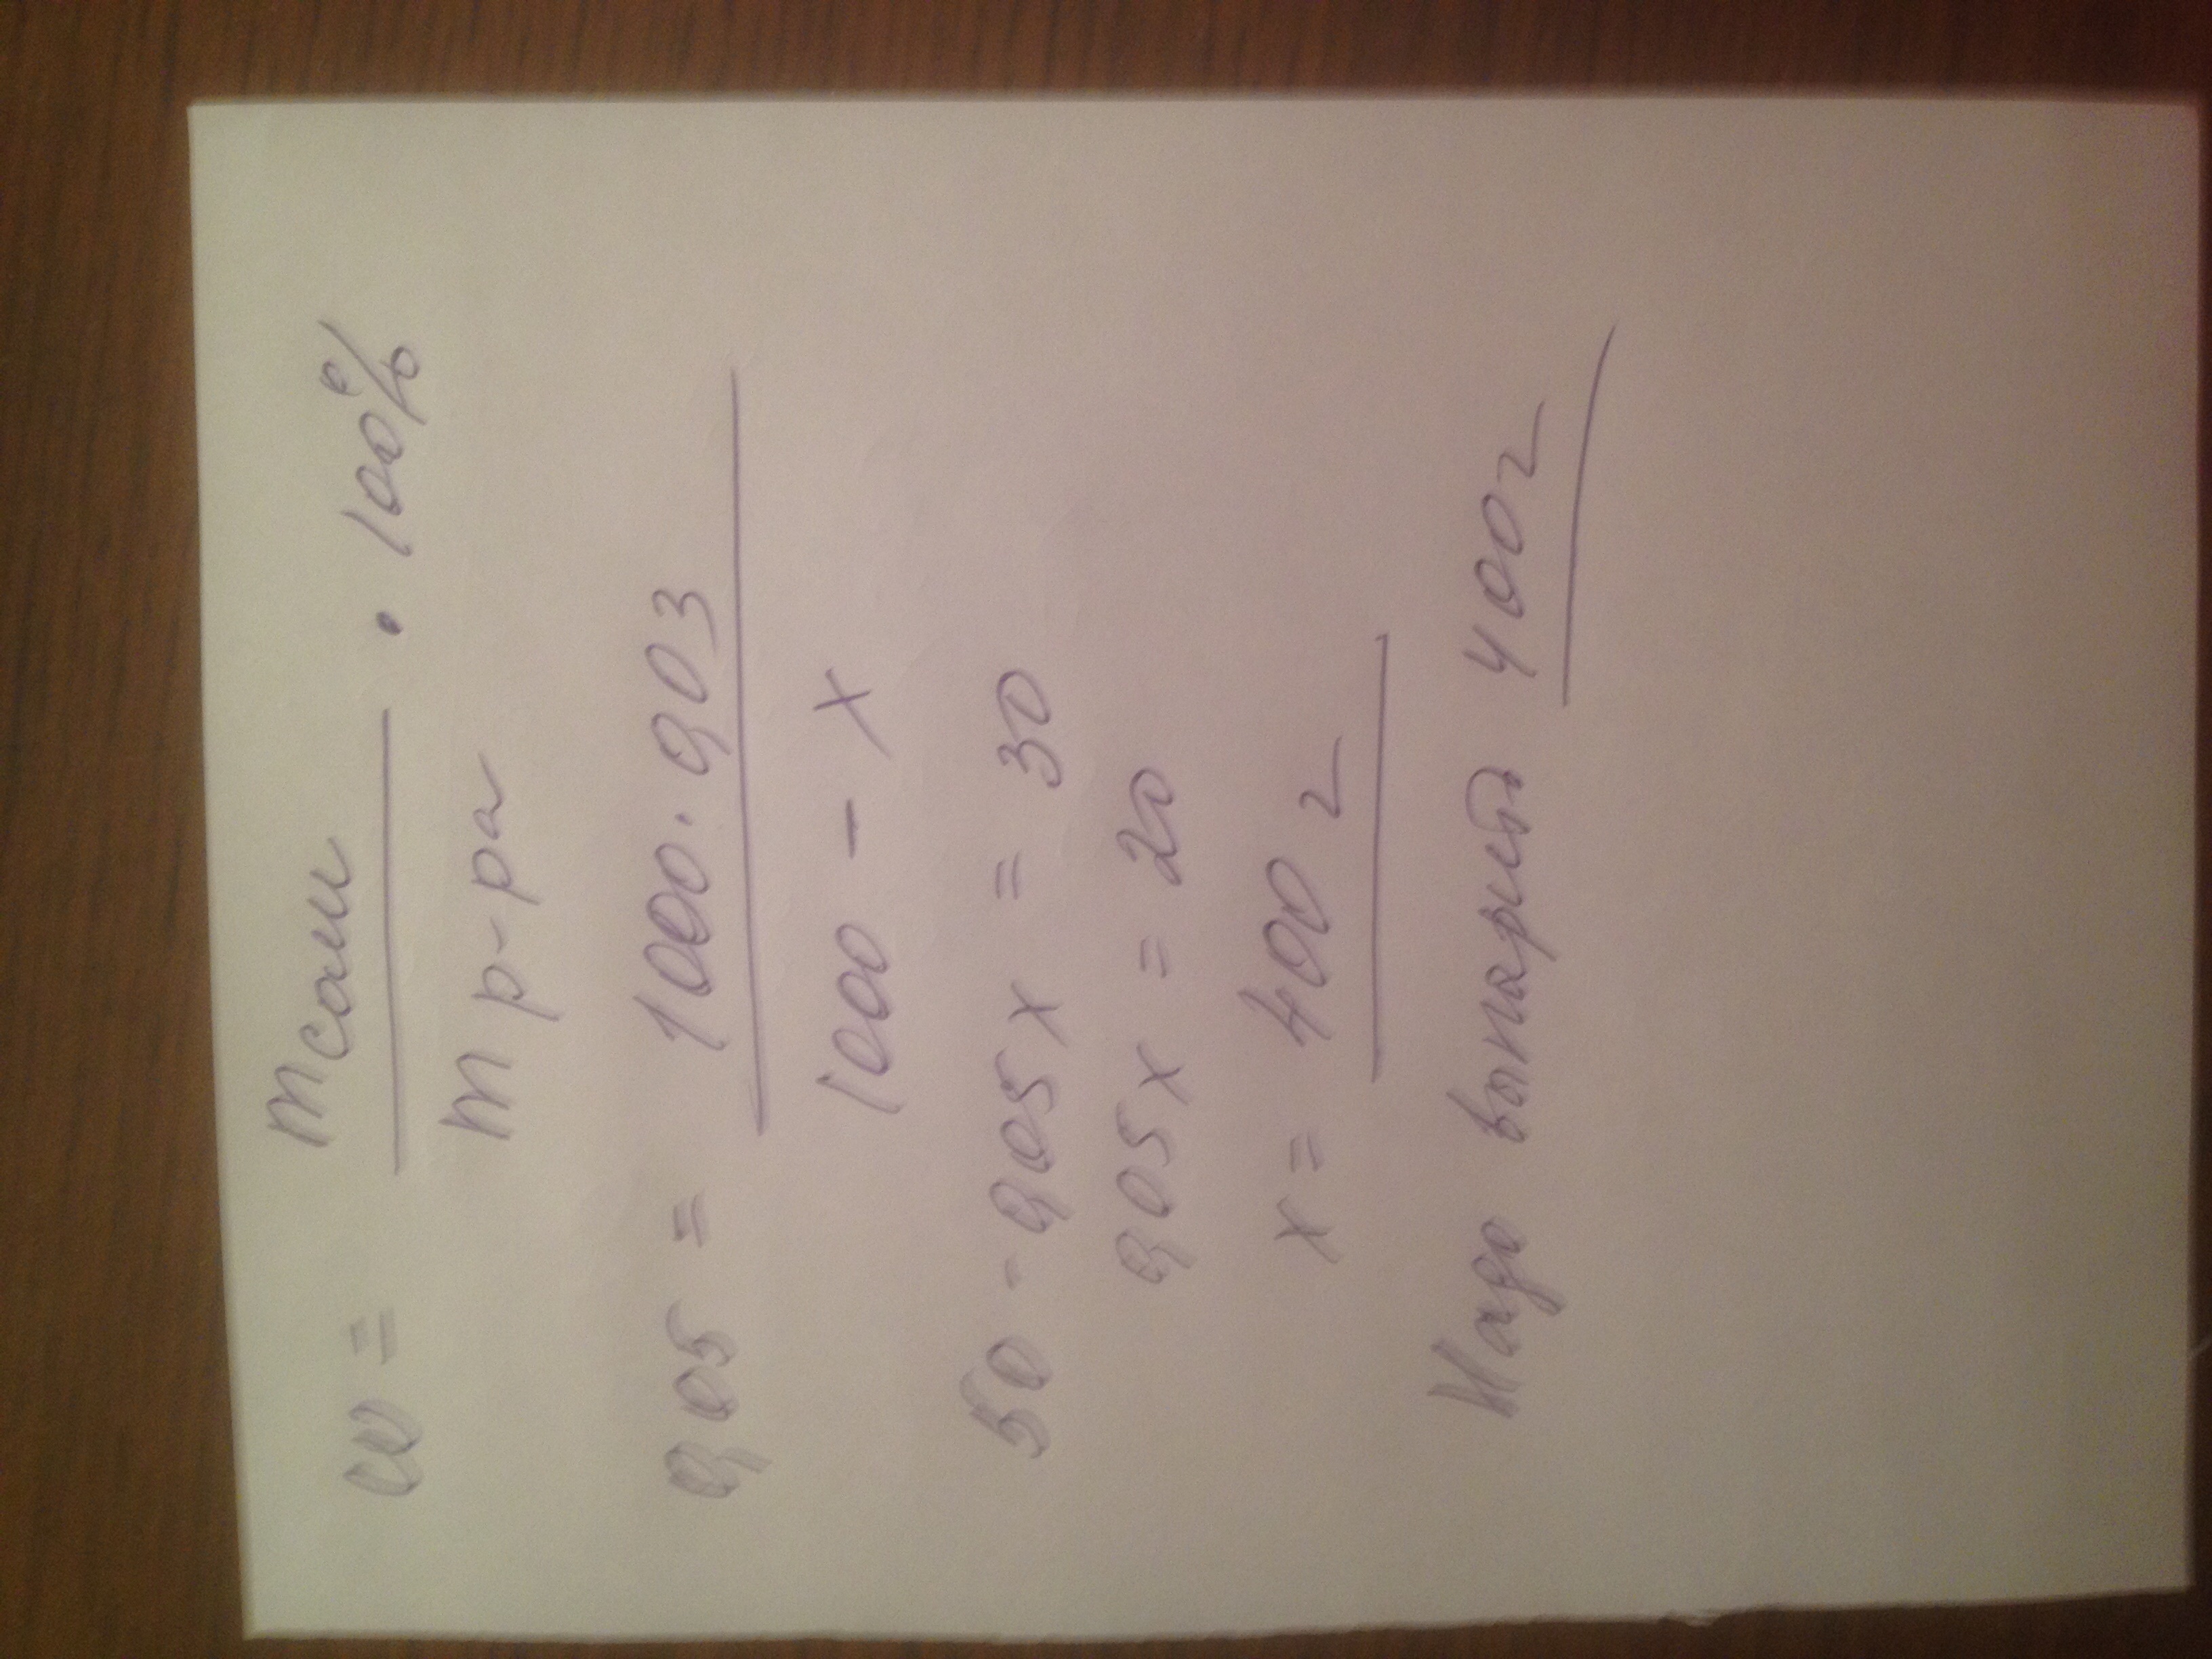 ω = m соли / m р-ра · 100%
0,05 = 1000 · 0,03 / 1000 - x
50 - 0,05x = 30
0,05x = 20
x = 400 г
Надо выпарить 400 г